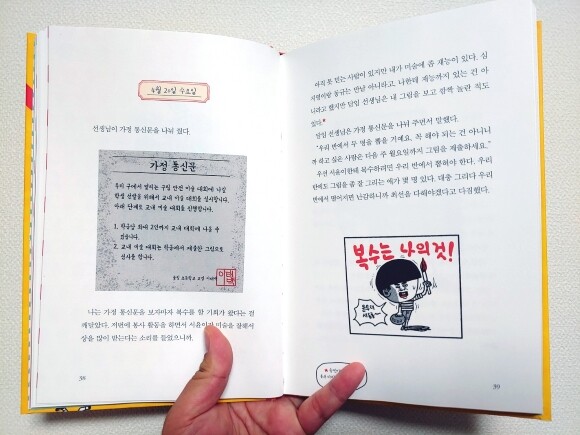 4월 20일 수요일
선생님이 가정 통신문을 나눠 줬다.
가정 통신문
우리 구에서 열리는 구립 안전 미술 대회에 나갈
학생 선발을 위해서 교내 미술 대회를 실시합니다.
아래 단계로 교내 미술 대회를 진행합니다.
1. 학급당 최대 2인까지 교내 대회에 나올 수
있습니다.
2. 교내 미술 대회는 학급에서 제출한 그림으로
심사를 합니다.
초등학교 교장
나는 가정 통신문을 보자마자 복수를 할 기회가 왔다는 걸
깨달았다. 저번에 봉사 활동을 하면서 서윤이가 미술을 잘해서
상을 많이 받는다는 소리를 들었으니까.
38
아직 못 믿는 사람이 있지만 내가 미술에 좀 재능이 있다. 심
지영이랑 동규는 만날 아니라고, 나한테 재능까지 있는 건 아
니라고 했지만 담임 선생님은 내 그림을 보고 깜짝 놀란 적도
있다.
담임 선생님은 가정 통신문을 나눠 주면서 말했다.
"우리 반에서 두 명을 뽑을 거예요. 꼭 해야 되는 건 아니니
까 하고 싶은 사람은 다음 주 월요일까지 그림을 제출하세요."
우선 서윤이한테 복수하려면 우리 반에서 뽑혀야 한다. 우리
반에도 그림을 좀 잘 그리는 애가 몇 명 있다. 대충 그리다 우리
반에서 떨어지면 난감하니까 최선을 다해야겠다고 다짐했다.
복수는 나의 것!
39